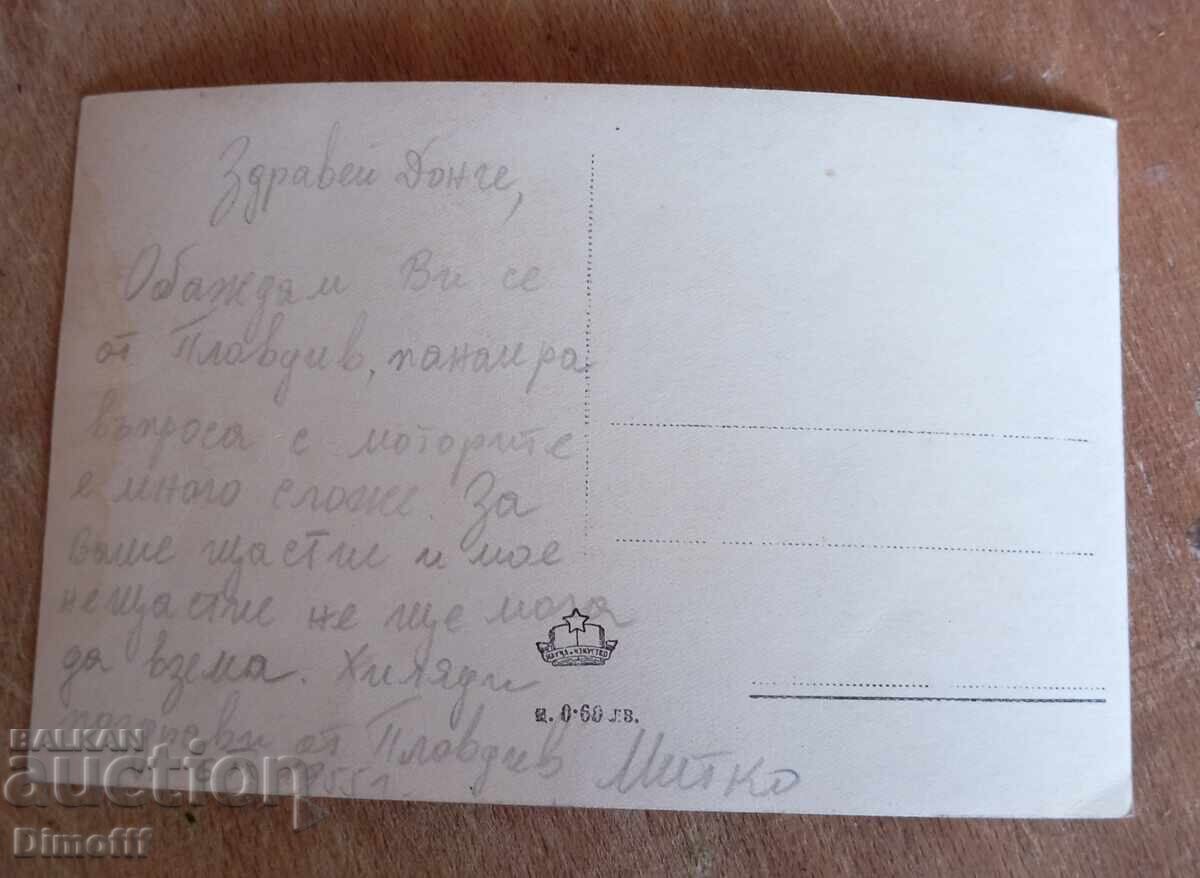 Здравей Донче,
Обаждам Ви се
от Пловдив, панаира
въпроса с моторите
е много сложе. За
ваше щастие и мое
нещастие не ще мога
да взема. Хиляди
поздрави от Пловдив Митко
55 г.
НАУКА И ИЗКУСТВО
ц. 0·60 лв.
BALKAN
auction
Dimofff